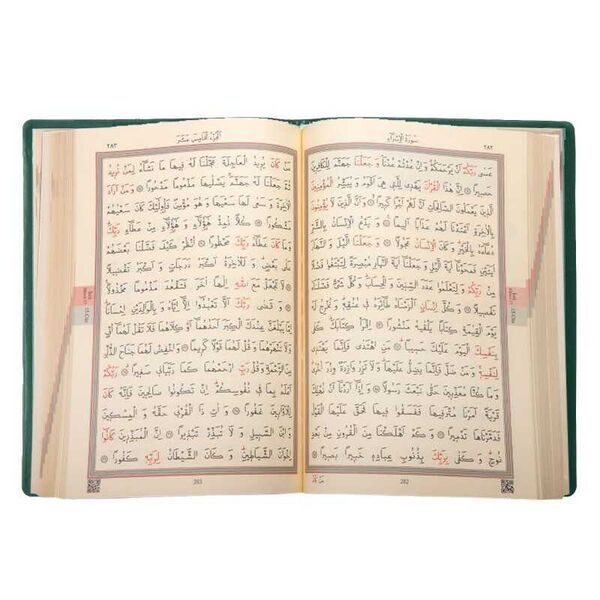 سورة الإسراء
عَسٰى رَبُّكُمْ اَنْ يَرْحَمَكُمْ وَاِنْ عُدْتُمْ عُدْنَا وَجَعَلْنَا جَهَنَّمَ لِلْكَافِرِينَ
حَصِيرًا اِنَّ هٰذَا الْقُرْاٰنَ يَهْدِي لِلَّتِي هِيَ اَقْوَمُ وَيُبَشِّرُ الْمُؤْمِنِينَ
الَّذِينَ يَعْمَلُونَ الصَّالِحَاتِ اَنَّ لَهُمْ اَجْرًا كَبِيرًا وَاَنَّ الَّذِينَ لَا يُؤْمِنُونَ
بِالْاٰخِرَةِ اَعْتَدْنَا لَهُمْ عَذَابًا اَلِيمًا وَيَدْعُ الْاِنْسَانُ بِالشَّرِّ
دُعَاءَهُ بِالْخَيْرِ وَكَانَ الْاِنْسَانُ عَجُولًا وَجَعَلْنَا الَّيْلَ وَالنَّهَارَ
اٰيَتَيْنِ فَمَحَوْنَا اٰيَةَ الَّيْلِ وَجَعَلْنَا اٰيَةَ النَّهَارِ مُبْصِرَةً لِتَبْتَغُوا فَضْلًا
مِنْ رَبِّكُمْ وَلِتَعْلَمُوا عَدَدَ السِّنِينَ وَالْحِسَابَ وَكُلَّ شَيْءٍ فَصَّلْنَاهُ
تَفْصِيلًا وَكُلَّ اِنْسَانٍ اَلْزَمْنَاهُ طَائِرَهُ فِي عُنُقِهِ وَنُخْرِجُ لَهُ
يَوْمَ الْقِيٰمَةِ كِتَابًا يَلْقٰيهُ مَنْشُورًا اِقْرَأْ كِتَابَكَ كَفٰى
بِنَفْسِكَ الْيَوْمَ عَلَيْكَ حَسِيبًا مَنِ اهْتَدٰى فَاِنَّمَا يَهْتَدِي
لِنَفْسِهِ وَمَنْ ضَلَّ فَاِنَّمَا يَضِلُّ عَلَيْهَا وَلَا تَزِرُ وَازِرَةٌ وِزْرَ اُخْرٰى
وَمَا كُنَّا مُعَذِّبِينَ حَتّٰى نَبْعَثَ رَسُولًا وَاِذَا اَرَدْنَا اَنْ نُهْلِكَ
قَرْيَةً اَمَرْنَا مُتْرَفِيهَا فَفَسَقُوا فِيهَا فَحَقَّ عَلَيْهَا الْقَوْلُ
فَدَمَّرْنَاهَا تَدْمِيرًا وَكَمْ اَهْلَكْنَا مِنَ الْقُرُونِ مِنْ بَعْدِ
نُوحٍ وَكَفٰى بِرَبِّكَ بِذُنُوبِ عِبَادِهِ خَبِيرًا بَصِيرًا
282
الجزء الخامس عشر
٢٨٣
مَنْ كَانَ يُرِيدُ الْعَاجِلَةَ عَجَّلْنَا لَهُ فِيهَا مَا نَشَاءُ لِمَنْ نُرِيدُ
ثُمَّ جَعَلْنَا لَهُ جَهَنَّمَ يَصْلٰيهَا مَذْمُومًا مَدْحُورًا وَمَنْ اَرَادَ
الْاٰخِرَةَ وَسَعٰى لَهَا سَعْيَهَا وَهُوَ مُؤْمِنٌ فَاُولٰئِكَ كَانَ سَعْيُهُمْ
مَشْكُورًا كُلًّا نُمِدُّ هٰؤُلَاءِ وَهٰؤُلَاءِ مِنْ عَطَاءِ رَبِّكَ
وَمَا كَانَ عَطَاءُ رَبِّكَ مَحْظُورًا اُنْظُرْ كَيْفَ فَضَّلْنَا بَعْضَهُمْ
عَلٰى بَعْضٍ وَلَلْاٰخِرَةُ اَكْبَرُ دَرَجَاتٍ وَاَكْبَرُ تَفْضِيلًا
لَا تَجْعَلْ مَعَ اللّٰهِ اِلٰهًا اٰخَرَ فَتَقْعُدَ مَذْمُومًا مَخْذُولًا
وَقَضٰى رَبُّكَ اَلَّا تَعْبُدُوا اِلَّا اِيَّاهُ وَبِالْوَالِدَيْنِ اِحْسَانًا
اِمَّا يَبْلُغَنَّ عِنْدَكَ الْكِبَرَ اَحَدُهُمَا اَوْ كِلَاهُمَا فَلَا تَقُلْ لَهُمَا اُفٍّ
وَلَا تَنْهَرْهُمَا وَقُلْ لَهُمَا قَوْلًا كَرِيمًا وَاخْفِضْ لَهُمَا جَنَاحَ الذُّلِّ
مِنَ الرَّحْمَةِ وَقُلْ رَبِّ ارْحَمْهُمَا كَمَا رَبَّيَانِي صَغِيرًا رَبُّكُمْ
اَعْلَمُ بِمَا فِي نُفُوسِكُمْ اِنْ تَكُونُوا صَالِحِينَ فَاِنَّهُ كَانَ
لِلْاَوَّابِينَ غَفُورًا وَاٰتِ ذَا الْقُرْبٰى حَقَّهُ وَالْمِسْكِينَ
وَابْنَ السَّبِيلِ وَلَا تُبَذِّرْ تَبْذِيرًا اِنَّ الْمُبَذِّرِينَ كَانُوا
اِخْوَانَ الشَّيَاطِينِ وَكَانَ الشَّيْطَانُ لِرَبِّهِ كَفُورًا
283